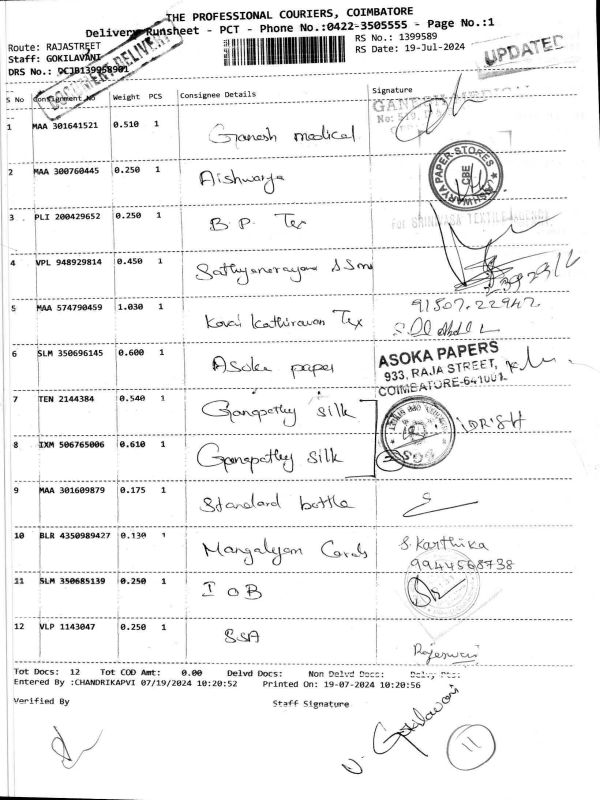 THE PROFESSIONAL COURIERS, COIMBATORE
Delivery Runsheet - PCT - Phone No.:0422-3505555 - Page No.:1
Route: RAJASTREET
RS No.: 1399589
Staff: GOKILAVANI
RS Date: 19-Jul-2024
UPDATED
DRS No.: DCJB139958901
DOCUMENT DELIVERY
S No Consignment No Weight PCS Consignee Details Signature
1 MAA 301641521 0.510 1 Ganesh medical
2 MAA 300760445 0.250 1 Aishwarya
AISHWARYA PAPER STORES CBE
3 PLI 200429652 0.250 1 B.P. Tex
4 VPL 948929814 0.450 1
5 MAA 574790459 1.030 1 Kovai Kathiravan Tex
91507.22942.
6 SLM 350696145 0.600 1 Asoka paper
ASOKA PAPERS
933, RAJA STREET,
COIMBATORE-641001.
7 TEN 2144384 0.540 1 Ganapathy silk
IDRISH
8 IXM 506765006 0.610 1 Ganapathy silk
9 MAA 301609879 0.175 1 Standard bottle
10 BLR 4350989427 0.130 1 Mangalyam Cards S. Karthika
9944568738
11 SLM 350685139 0.250 1 IOB
12 VLP 1143047 0.250 1 SSA
Rajeswari
Tot Docs: 12 Tot COD Amt: 0.00 Delvd Docs: Non Delvd Docs:
Entered By :CHANDRIKAPVI 07/19/2024 10:20:52 Printed On: 19-07-2024 10:20:56
Verified By Staff Signature
V. Gokilavani
11